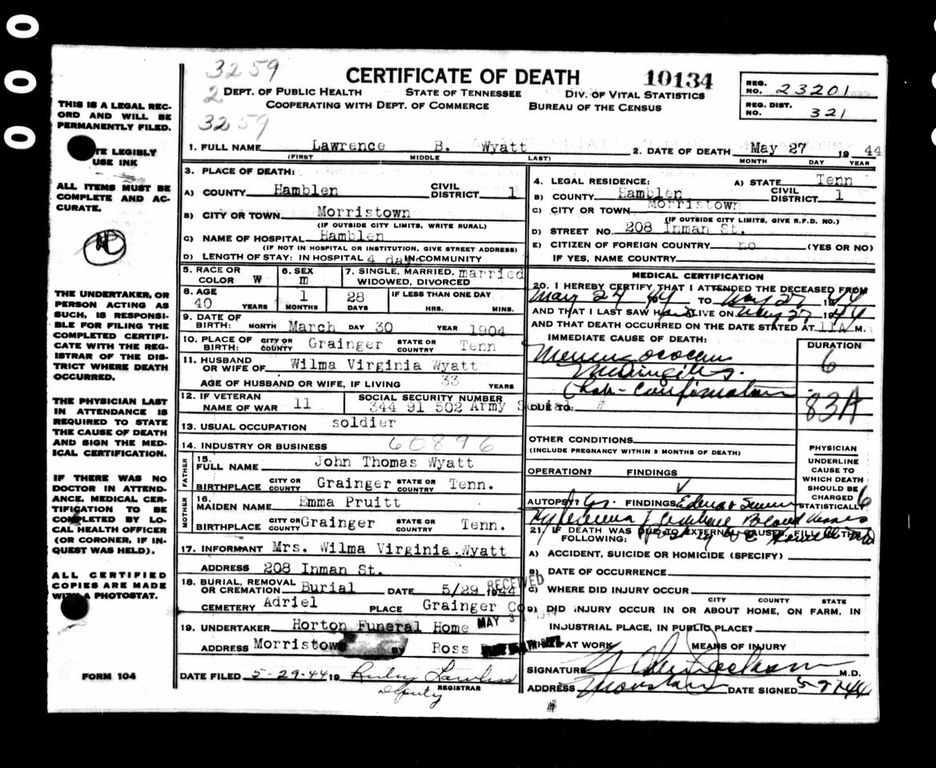 3259
2
3259
CERTIFICATE OF DEATH
10134
DEPT. OF PUBLIC HEALTH STATE OF TENNESSEE DIV. OF VITAL STATISTICS
COOPERATING WITH DEPT. OF COMMERCE BUREAU OF THE CENSUS
REG. NO. 23201
REG. DIST. 321
THIS IS A LEGAL RECORD AND WILL BE PERMANENTLY FILED.
LEGIBLY
USE INK
ALL ITEMS MUST BE COMPLETE AND ACCURATE.
THE UNDERTAKER, OR PERSON ACTING AS SUCH, IS RESPONSIBLE FOR FILING THE COMPLETED CERTIFICATE WITH THE REGISTRAR OF THE DISTRICT WHERE DEATH OCCURRED.
THE PHYSICIAN LAST IN ATTENDANCE IS REQUIRED TO STATE THE CAUSE OF DEATH AND SIGN THE MEDICAL CERTIFICATION.
IF THERE WAS NO DOCTOR IN ATTENDANCE, MEDICAL CERTIFICATION TO BE COMPLETED BY LOCAL HEALTH OFFICER (OR CORONER, IF INQUEST WAS HELD).
ALL CERTIFIED COPIES ARE MADE WITH A PHOTOSTAT.
FORM 104
1. FULL NAME Lawrence B. Wyatt
(FIRST) MIDDLE LAST)
2. DATE OF DEATH May 27 19 44
MONTH DAY YEAR
3. PLACE OF DEATH:
A) COUNTY Hamblen CIVIL DISTRICT 1
B) CITY OR TOWN Morristown
(IF OUTSIDE CITY LIMITS, WRITE RURAL)
C) NAME OF HOSPITAL Hamblen
(IF NOT IN HOSPITAL OR INSTITUTION, GIVE STREET ADDRESS)
D) LENGTH OF STAY: IN HOSPITAL 4 days IN COMMUNITY
5. RACE OR COLOR W
6. SEX m
7. SINGLE, MARRIED, WIDOWED, DIVORCED married
8. AGE 40 YEARS 1 MONTHS 28 DAYS
IF LESS THAN ONE DAY HRS. MINS.
9. DATE OF BIRTH: MONTH March DAY 30 YEAR 1904
10. PLACE OF BIRTH: CITY OR COUNTY Grainger STATE OR COUNTY Tenn
11. HUSBAND OR WIFE OF Wilma Virginia Wyatt
AGE OF HUSBAND OR WIFE, IF LIVING 33 YEARS
12. IF VETERAN NAME OF WAR 11
SOCIAL SECURITY NUMBER 344 91 502 Army
13. USUAL OCCUPATION soldier
14. INDUSTRY OR BUSINESS 60896
FATHER
15. FULL NAME John Thomas Wyatt
BIRTHPLACE CITY OR COUNTY Grainger STATE OR COUNTY Tenn.
MOTHER
16. MAIDEN NAME Emma Pruitt
BIRTHPLACE CITY OR COUNTY Grainger STATE OR COUNTY Tenn.
17. INFORMANT Mrs. Wilma Virginia Wyatt
ADDRESS 208 Inman St.
18. BURIAL, REMOVAL OR CREMATION Burial DATE 5/29 1944
RECEIVED
CEMETERY Adriel PLACE Grainger Co
19. UNDERTAKER Horton Funeral Home
MAY 3
ADDRESS Morristown BY Ross
DATE FILED 5-29-44 19 Ruby Lawless
Deputy REGISTRAR
4. LEGAL RESIDENCE: A) STATE Tenn
B) COUNTY Hamblen CIVIL DISTRICT 1
C) CITY OR TOWN Morristown
(IF OUTSIDE CITY LIMITS, GIVE R.F.D. NO.)
D) STREET NO. 208 Inman St.
E) CITIZEN OF FOREIGN COUNTRY no (YES OR NO)
IF YES, NAME COUNTRY
MEDICAL CERTIFICATION
20. I HEREBY CERTIFY THAT I ATTENDED THE DECEASED FROM
May 24 44 TO May 27 1944
AND THAT I LAST SAW ALIVE ON May 27 1944
AND THAT DEATH OCCURRED ON THE DATE STATED AT 11A M.
IMMEDIATE CAUSE OF DEATH: DURATION
Meningococcus 6
Meningitis
83A
DUE TO #
OTHER CONDITIONS
(INCLUDE PREGNANCY WITHIN 3 MONTHS OF DEATH)
OPERATION? FINDINGS
PHYSICIAN UNDERLINE CAUSE TO WHICH DEATH SHOULD BE CHARGED STATISTICALLY
6
AUTOPSY? FINDINGS
21. IF DEATH WAS DUE TO EXTERNAL CAUSES, FILL IN THE FOLLOWING:
A) ACCIDENT, SUICIDE OR HOMICIDE (SPECIFY)
B) DATE OF OCCURRENCE
C) WHERE DID INJURY OCCUR
CITY COUNTY STATE
D) DID INJURY OCCUR IN OR ABOUT HOME, ON FARM, IN
INDUSTRIAL PLACE, IN PUBLIC PLACE?
AT WORK MEANS OF INJURY
SIGNATURE M.D.
ADDRESS DATE SIGNED